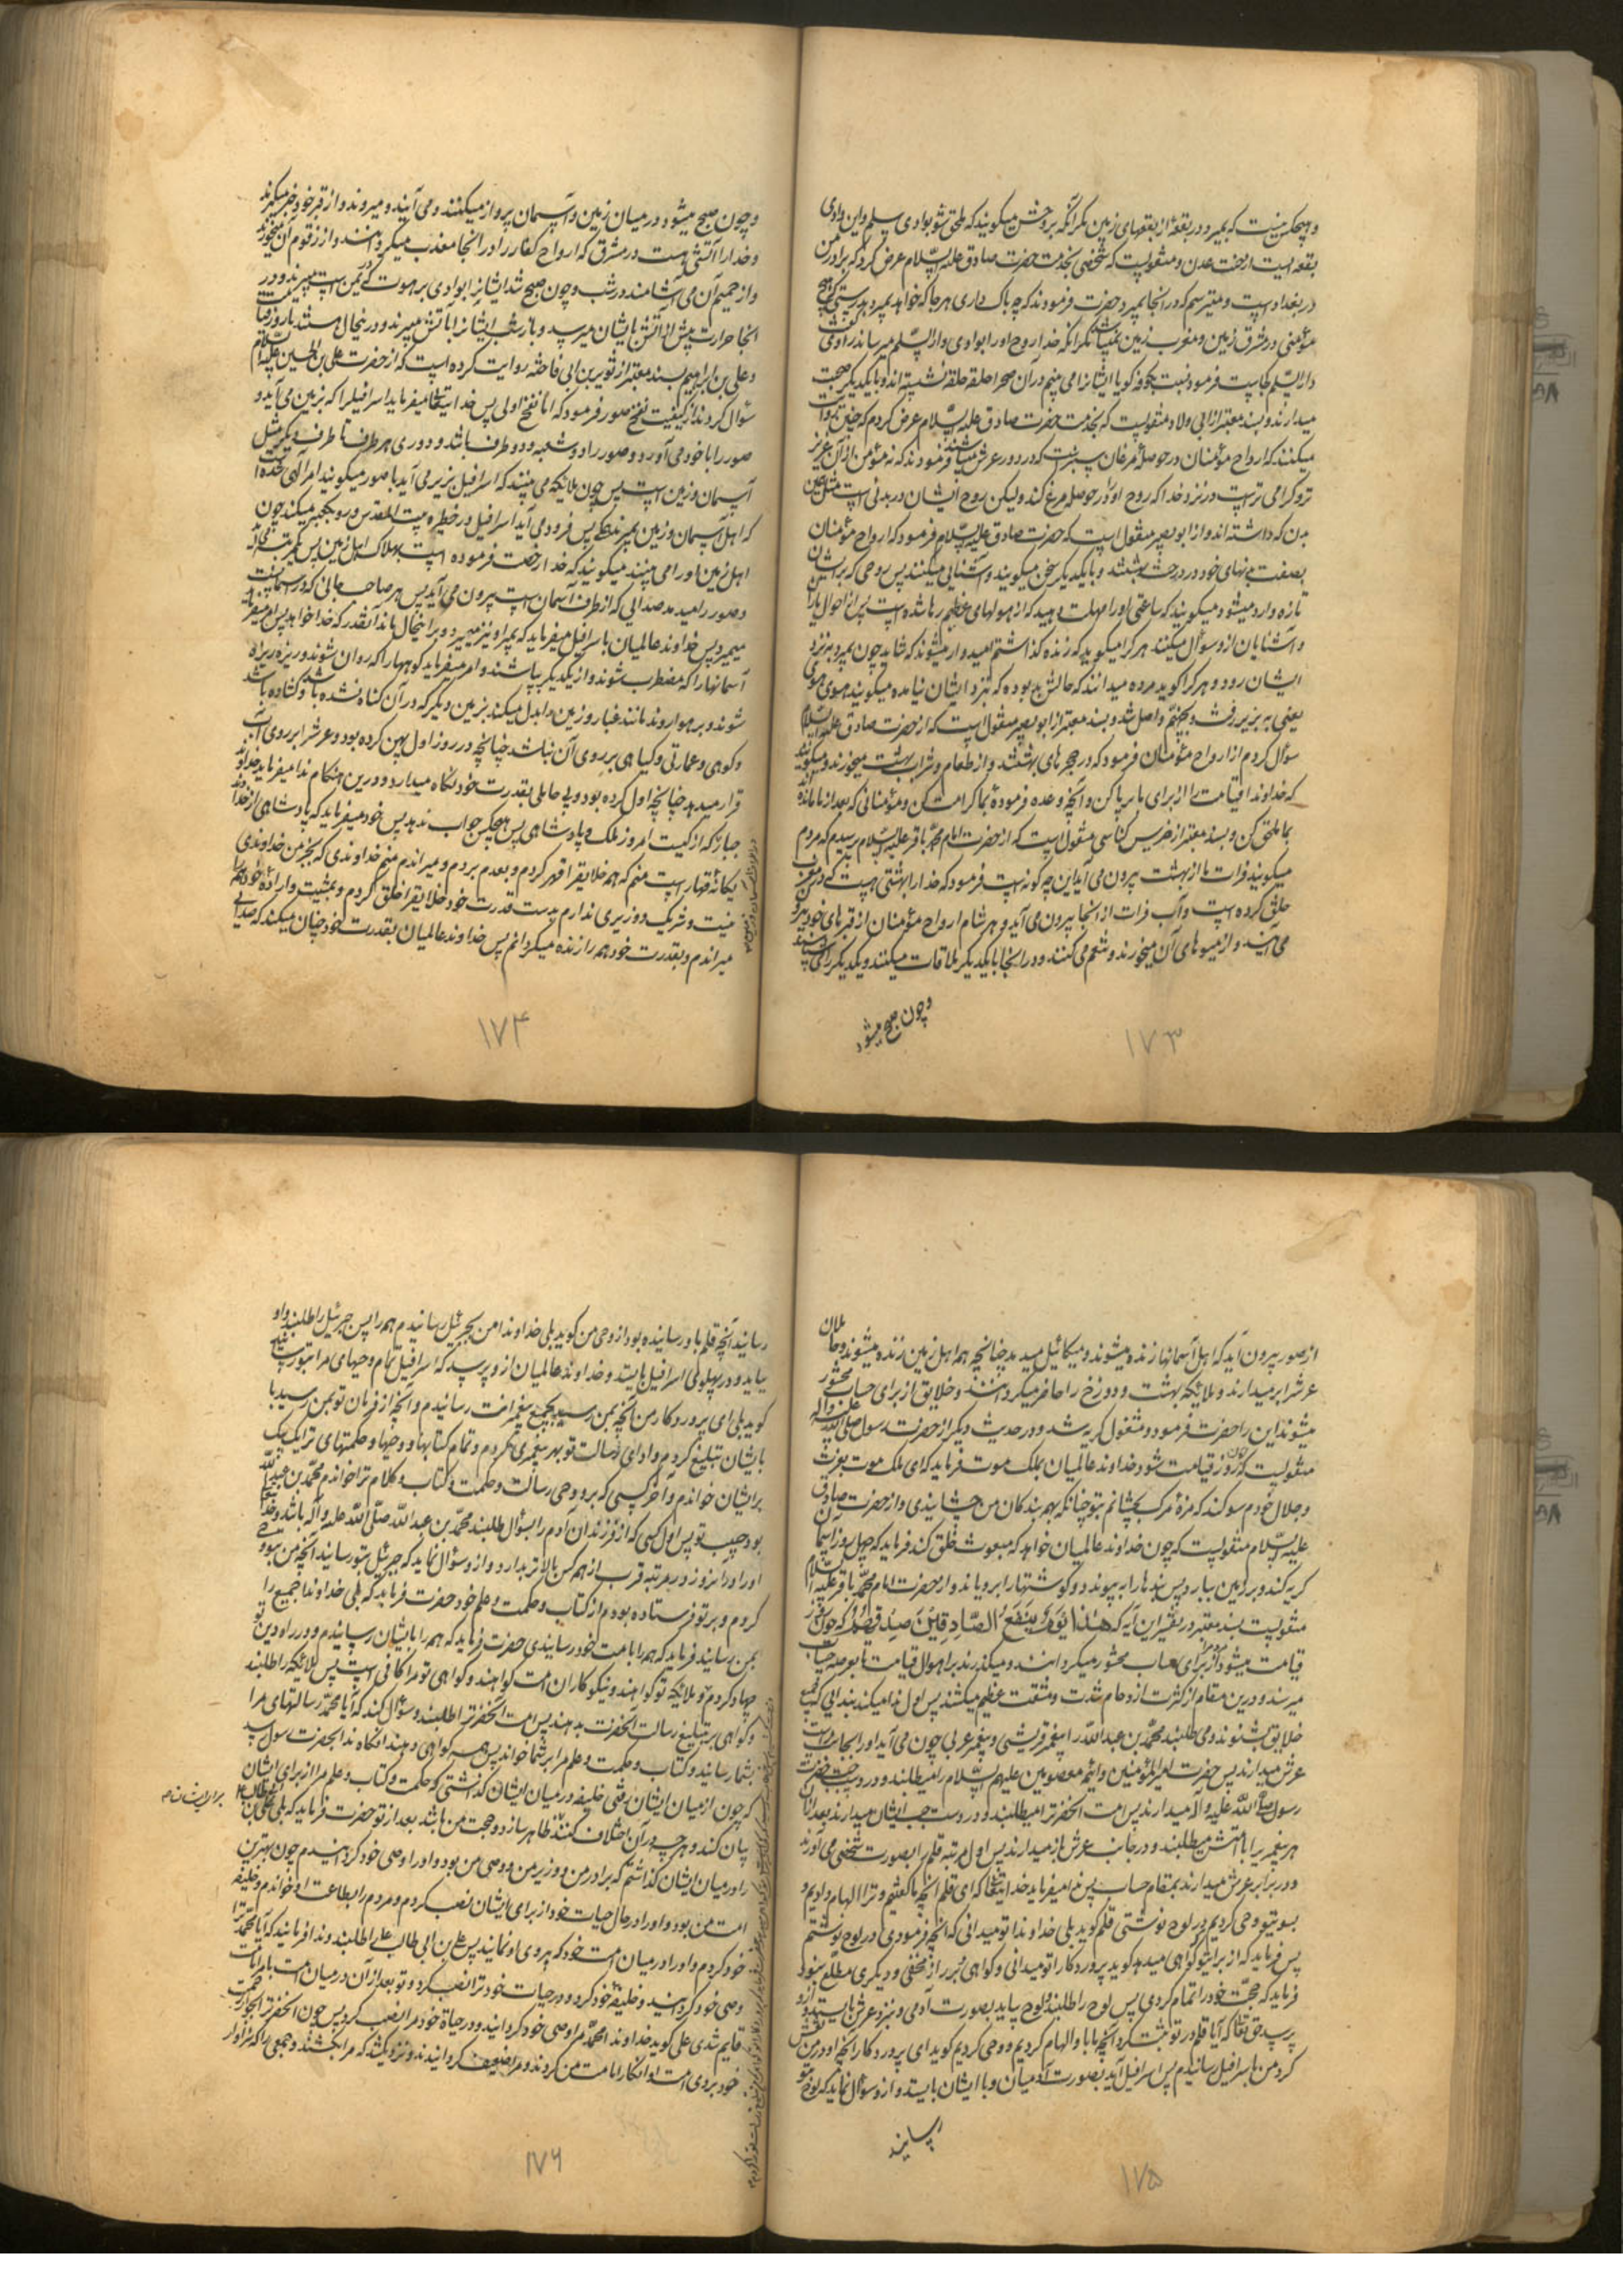 و هیچکس نیست که بمیرد در بقعهٔ از بقعهای زمین مگر آنکه بروحش میکویند که ملحق شو بوادی سلم و این وادی
بقعه ایست از جنت عدن و منقولیست که شخصی بخدمت حضرت صادق علیه السلام عرض کرد که برادر من
در بغداد است و میترسم که در انجا بمیرد حضرت فرمودند که چه باک داری هر جا که خواهد بمیرد بدرستی که هیچ
مؤمنی در مشرق زمین و مغرب زمین نمیباشد مگر آنکه خدا روح او را بوادی دار السلم میرساند راوی گفت
دار السلم کجاست فرمود پشت کوفه کویا ایشانرا می بینم در آن صحرا حلقه حلقه نشسته اند و با یکدیگر صحبت
میدارند و بسند معتبر از ابی ولاد منقولیست که بخدمت حضرت صادق علیه السلام عرض کردم که چنین روایت
میکنند که ارواح مؤمنان در حوصلهٔ مرغان سبز است که در دور عرش میباشند فرمودند که نه مؤمن از آن عزیز
تر و کرامی تر است در نزد خدا که روح او را در حوصله مرغ کند ولیکن روح ایشان در بدنی است مثل همین
بدن که داشته اند و از ابو بصیر منقول است که حضرت صادق علیه السلام فرمود که ارواح مؤمنان
بصفت بدنهای خود در درخت بهشتند و با یکدیگر سخن میکویند و آشنایی میکنند پس روحی که بر ایشان
تازه وارد میشود میکویند که ساعتی او را مهلت دهید که از هولهای عظیم رها شده است پس از احوال یاران
و آشنایان از و سؤال میکنند هر کرا میکوید که زنده کذاشتم امیدوار میشوند که شاید چون بمیرد بنزد
ایشان رود و هر کرا کوید مرده میدانند که حالش بد بوده که بنزد ایشان نیامده میکویند هوی هوی
یعنی به زیر رفت و بجهنم واصل شد و بسند معتبر از ابو بصیر منقول است که از حضرت صادق علیه السلام
سؤال کردم از ارواح مؤمنان فرمود که در حجرهای بهشتند و از طعام و شراب بهشت میخورند و میکویند
که خداوندا قیامت را از برای ما بر پا کن و آنچه وعده فرمودهٔ بما کرامت کن و مؤمنانی که بعد از ما مانده اند
بما ملحق کن و بسند معتبر از ضریس کناسی منقول است که از حضرت امام محمد باقر علیه السلام پرسیدم که مردم
میکویند فرات ما از بهشت بیرون می آید این چه کونه است فرمود که خدا را بهشتی هست که در مغرب
خلق کرده است و آب فرات از انجا بیرون می آید و هر شام ارواح مؤمنان از قبرهای خود بیرون
می آیند و از میوهای آن میخورند و تنعم می کنند و در انجا با یکدیگر ملاقات میکنند و یکدیگر را میشناسند
و چون صبح میشود
۱۷۳
و چون صبح میشود در میان زمین و آسمان پرواز میکنند و می آیند و میروند و از قبر خود خبر میکیرند
و خدا را آتشی هست در مشرق که ارواح کفار را در انجا معذب میکردانند و از زقوم آن میخورند
و از حمیم آن می آشامند در شب و چون صبح شد ایشانرا بوادی برهوت که در یمن است میبرند و در
انجا حرارت بیش از آتش بایشان میرسد و باز شب ایشانرا باتش میبرند و در اینحال هستند تا روز قیامت
و علی بن ابراهیم بسند معتبر از ثویر بن ابی فاخته روایت کرده است که از حضرت علی بن الحسین علیه السلام
سؤال کردند از کیفیت نفخ صور فرمود که اما نفخ اولی پس خدایتعالی میفرماید اسرافیلرا که بزمین می آید و
صور را با خود می آورد و صور را دو شعبه و دو طرف باشد و دوری هر طرف تا طرف دیگر مثل
آسمان و زمین است پس چون ملایکه می بینند که اسرافیل بزیر می آید با صور میکویند امر آلهی شده است
که اهل آسمان و زمین بمیرند پس فرود می آید اسرافیل در خطیره بیت المقدس و رو بکعبه میکند چون
اهل زمین او را می بینند میکویند که خدا رخصت فرموده است بهلاک اهل زمین پس یکمرتبه
و صور را میدمد صدایی که از طرف آسمان است بیرون می آید پس هر صاحب جانی که در آسمانست
میمیرد پس خداوند عالمیان باسرافیل میفرماید که بمیر او نیز میمیرد و بر اینحال باشد آنقدر که خدا خواهد پس امر میفرماید
آسمانها را که مضطرب شوند و از یکدیگر بپاشند و امر میفرماید کوهها را که روان شوند و ریزه ریزه
شوند و بر هوا روند مانند غبار و زمین را بدل میکند بزمین دیگر که در آن کناه نشده باشد و کشاده باشد
و کوهی و عمارتی و کیاهی بر روی آن نباشد چنانچه در روز اول پهن کرده بود و عرش را بر روی آب
قرار میدهد چنانچه اول کرده بود و بی حاملی بقدرت خود نکاه میدارد و درین هنکام ندا میفرماید خداوند
جبار که از کیست امروز ملک و پادشاهی پس هیچکس جواب ندهد پس خود میفرماید که پادشاهی از خدای
یکانه قهار است منم که همه خلایق را قهر کردم و بعدم بردم و میراندم منم خداوندی که بجز من خداوندی
نیست و شریک و وزیری ندارم بدست قدرت خود خلایق را خلق کردم و بمشیت و اراده خود همه را
میراندم و بقدرت خود همه را زنده میکردانم پس خداوند عالمیان بقدرت خود چنان میکند که صدایی
۱۷۴
از صور بیرون آید که اهل آسمانها زنده میشوند و میکائیل میدمد چنانچه همه اهل زمین زنده میشوند و حاملان
عرش را بر میدارند و ملائکه بهشت و دوزخ را حاضر میکردانند و خلایق از برای حساب محشور
میشوند این را حضرت فرمود و مشغول کریه شد و در حدیث دیگر از حضرت رسول صلی الله علیه و آله
منقولیست که چون روز قیامت شود خداوند عالمیان بملک موت فرماید که ای ملک موت بعزت
و جلال خودم سوکند که مزهٔ مرک بچشانم بتو چنانکه بهمه بندکان من چشانیدی و از حضرت صادق
علیه السلام منقولیست که چون خداوند عالمیان خواهد که مبعوث خلق کند فرماید که چهل روز آسمان
کریه کند و بر زمین ببارد پس بندها را به پیوندد و کوشتها را برویاند و از حضرت امام محمد باقر علیه السلام
منقولیست بسند معتبر در تفسیر این آیه که هٰذَا یَوْمُ یَنْفَعُ الصَّادِقِینَ صِدْقُهُمْ که چون روز
قیامت میشود از برای حساب محشور میکردانند و میکذرند بر اهوال قیامت تا بعرصه حساب
میرسند و درین مقام از کثرت ازدحام شدت و مشقت عظیم میکشند پس اول ندا میکند بندایی که جمیع
خلایق بشنوند و می طلبند محمد بن عبد الله را پیغمبر قریشی و پیغمبر عربی چون می آید او را بجانب راست
عرش میدارند پس حضرت امیر المؤمنین و ائمه معصومین علیهم السلام را میطلبند و در دست چپ حضرت
رسول صلی الله علیه و آله میدارند پس امت آنحضرترا میطلبند و در دست چپ ایشان میدارند بعد از آن
هر پیغمبریرا با امتش میطلبند و در جانب عرش باز میدارند پس اول مرتبه قلم را بصورت شخصی می آورند
و در برابر عرش میدارند بمقام حساب پس ندا میفرماید خدایتعالی که ای قلم آنچه ما کفتیم و ترا الهام دادیم و
بسوی تو وحی کردیم در لوح نوشتی قلم کوید بلی خداوندا تو میدانی که آنچه فرمودی در لوح نوشتم
پس فرماید که از برای تو کواهی میدهد کوید پروردکارا تو میدانی و کواهی بر راز مخفی و دیگری مطلع نبود
فرماید که حجت خود را تمام کردی پس لوح را طلبند و لوح بیاید بصورت آدمی و نزد عرش بایستد و از و
پرسد حق تعالی که آیا قلم در تو ثبت کرد آنچه ما با و الهام کردیم و وحی کردیم کوید ای پروردکار آنچه او در من نقش
کرد من باسرافیل رسانیدم پس اسرافیل آید بصورت آدمیان و با ایشان بایستد و از و سؤال نماید که لوح بتو
رسانید
۱۷۵
رسانید آنچه قلم باو رسانیده بود از وحی من کوید بلی خداوندا من بجبرئیل رسانیدم همه را پس جبرئیل را طلبند و او
بیاید و در پهلوی اسرافیل بایستد و خداوند عالمیان از و پرسد که اسرافیل تمام وحیهای مرا بتو رسانید
کوید بلی ای پروردکار من آنچه بمن رسید بجمیع پیغمبرانت رسانیدم و آنچه از فرمان تو بمن رسید با
بایشان تبلیغ کردم و ادای رسالت تو بهر پیغمبری کردم و تمام کتابها و وحیها و حکمتهای ترا یک یک
بر ایشان خواندم و آخر کسی که برو وحی رسالت و حکمت و کتاب و کلام ترا خواندم محمد بن عبد الله
بود حبیب تو پس اول کسی که از فرزندان آدم را بسؤال طلبند محمد بن عبد الله صلی الله علیه و آله باشد و خدا
او را در آنروز در مرتبه قرب از همه کس بالاتر بدارد و از و سؤال نماید که جبرئیل بتو رسانید آنچه من بسوی
کردم و بر تو فرستاده بودم از کتاب و حکمت و علم خود حضرت فرماید که بلی خداوندا جمیع را
بمن رسانید فرماید که همه را بامت خود رسانیدی حضرت فرماید که همه را بایشان رسانیدم و در راه دین تو
جهاد کردم و ملائکه تو کواهند و نیکوکاران امت کواهند و کواهی تو مرا کافی است پس ملائکه را طلبند
و کواهی بر تبلیغ رسالت آنحضرت بدهند پس امت آنحضرترا طلبند و سؤال کند که آیا محمد رسالتهای مرا
بشما رسانید و کتاب و حکمت و علم مرا بر شما خواند پس همه کواهی دهند آنکاه ندا بحضرت رسول رسد
که چون از میان ایشان رفتی خلیفه در میان ایشان کذاشتی که حکمت و کتاب و علم مرا از برای ایشان
بیان کند و هر چه در آن اختلاف کنند ظاهر سازد و حجت من باشد بعد از تو حضرت فرماید که بلی علی بن ابی طالب
را در میان ایشان کذاشتم که برادر من و وزیر من و وصی من بود و او را وصی خود کردانیدم چون بهترین
امت من بود و او را در حال حیات خود از برای ایشان نصب کردم و مردم را بطاعت او خواندم و خلیفه
خود کردم و او را در میان امت خود که پیروی او نمایند پس علی بن ابی طالب را طلبند و ندا فرمایند که آیا محمد ترا
وصی خود کردانید و خلیفهٔ خود کرد و در حیات خود ترا نصب کرد و تو بعد از آن در میان امت
قایم شدی علی کوید خداوندا محمد مرا وصی خود کردانید و در حیاة خود مرا نصب کرد پس چون آنحضرترا بجوار رحمت
خود بردی امت او انکار امامت من کردند و مرا ضعیف کردانیدند و نزدیک شد که مرا بکشند و جمعی را که سزاوار
۱۷۶